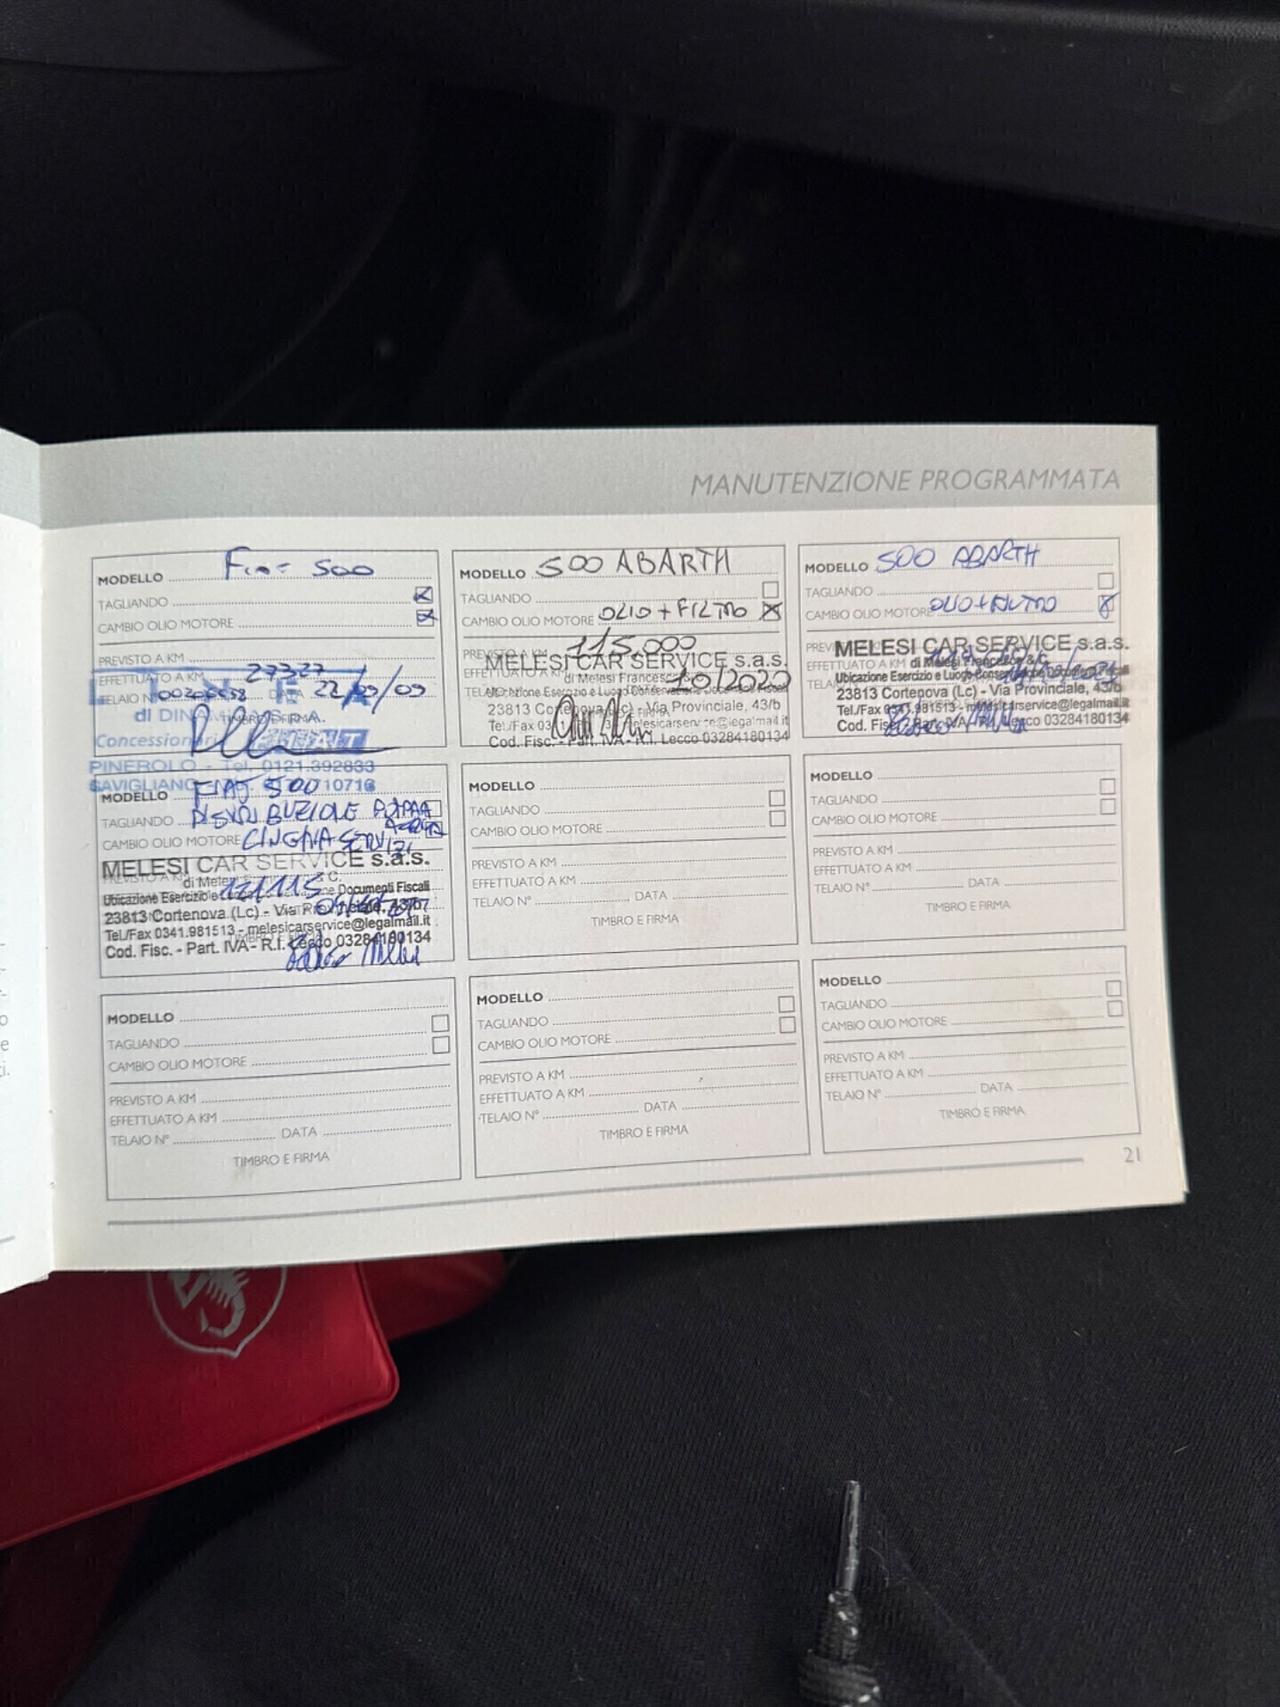 MANUTENZIONE PROGRAMMATA
MODELLO Fiat 500
TAGLIANDO
CAMBIO OLIO MOTORE
PREVISTO A KM
EFFETTUATO A KM 27327
TELAIO N° DATA 22/09/09
di DINA
TIMBRO E FIRMA
Concessionari FIAT
PINEROLO - Tel. 0121.392833
SAVIGLIANO 10716
MODELLO 500 ABARTH
TAGLIANDO
CAMBIO OLIO MOTORE OLIO + FILTRO
115.000
MELESI CAR SERVICE s.a.s.
EFFETTUATO A KM di Melesi Francesco
10/2020
Ubicazione Esercizio e Luogo Conservazione Documenti Fiscali
23813 Cortenova (Lc) - Via Provinciale, 43/b
Tel./Fax melesicarservice@legalmail.it
Cod. Fisc. - Part. IVA - R.I. Lecco 03284180134
MODELLO 500 ABARTH
TAGLIANDO
CAMBIO OLIO MOTORE OLIO + FILTRO
MELESI CAR SERVICE s.a.s.
EFFETTUATO A KM di Melesi Francesco & C.
Ubicazione Esercizio e Luogo Conservazione
23813 Cortenova (Lc) - Via Provinciale, 43/b
Tel./Fax 0341.981513 - melesicarservice@legalmail.it
Cod. Fisc. - Part. IVA - R.I. Lecco 03284180134
MODELLO FIAT 500
TAGLIANDO DISTRIBUZIONE POMPA
ACQUA
CAMBIO OLIO MOTORE CINGHIA SERVIZI
MELESI CAR SERVICE s.a.s.
di Melesi & C.
121115
Ubicazione Esercizio e Luogo Conservazione Documenti Fiscali
23813 Cortenova (Lc) - Via Provinciale, 43/b
Tel./Fax 0341.981513 - melesicarservice@legalmail.it
Cod. Fisc. - Part. IVA - R.I. Lecco 03284180134
MODELLO
TAGLIANDO
CAMBIO OLIO MOTORE
PREVISTO A KM
EFFETTUATO A KM
TELAIO N° DATA
TIMBRO E FIRMA
MODELLO
TAGLIANDO
CAMBIO OLIO MOTORE
PREVISTO A KM
EFFETTUATO A KM
TELAIO N° DATA
TIMBRO E FIRMA
MODELLO
TAGLIANDO
CAMBIO OLIO MOTORE
PREVISTO A KM
EFFETTUATO A KM
TELAIO N° DATA
TIMBRO E FIRMA
MODELLO
TAGLIANDO
CAMBIO OLIO MOTORE
PREVISTO A KM
EFFETTUATO A KM
TELAIO N° DATA
TIMBRO E FIRMA
MODELLO
TAGLIANDO
CAMBIO OLIO MOTORE
PREVISTO A KM
EFFETTUATO A KM
TELAIO N° DATA
TIMBRO E FIRMA
21